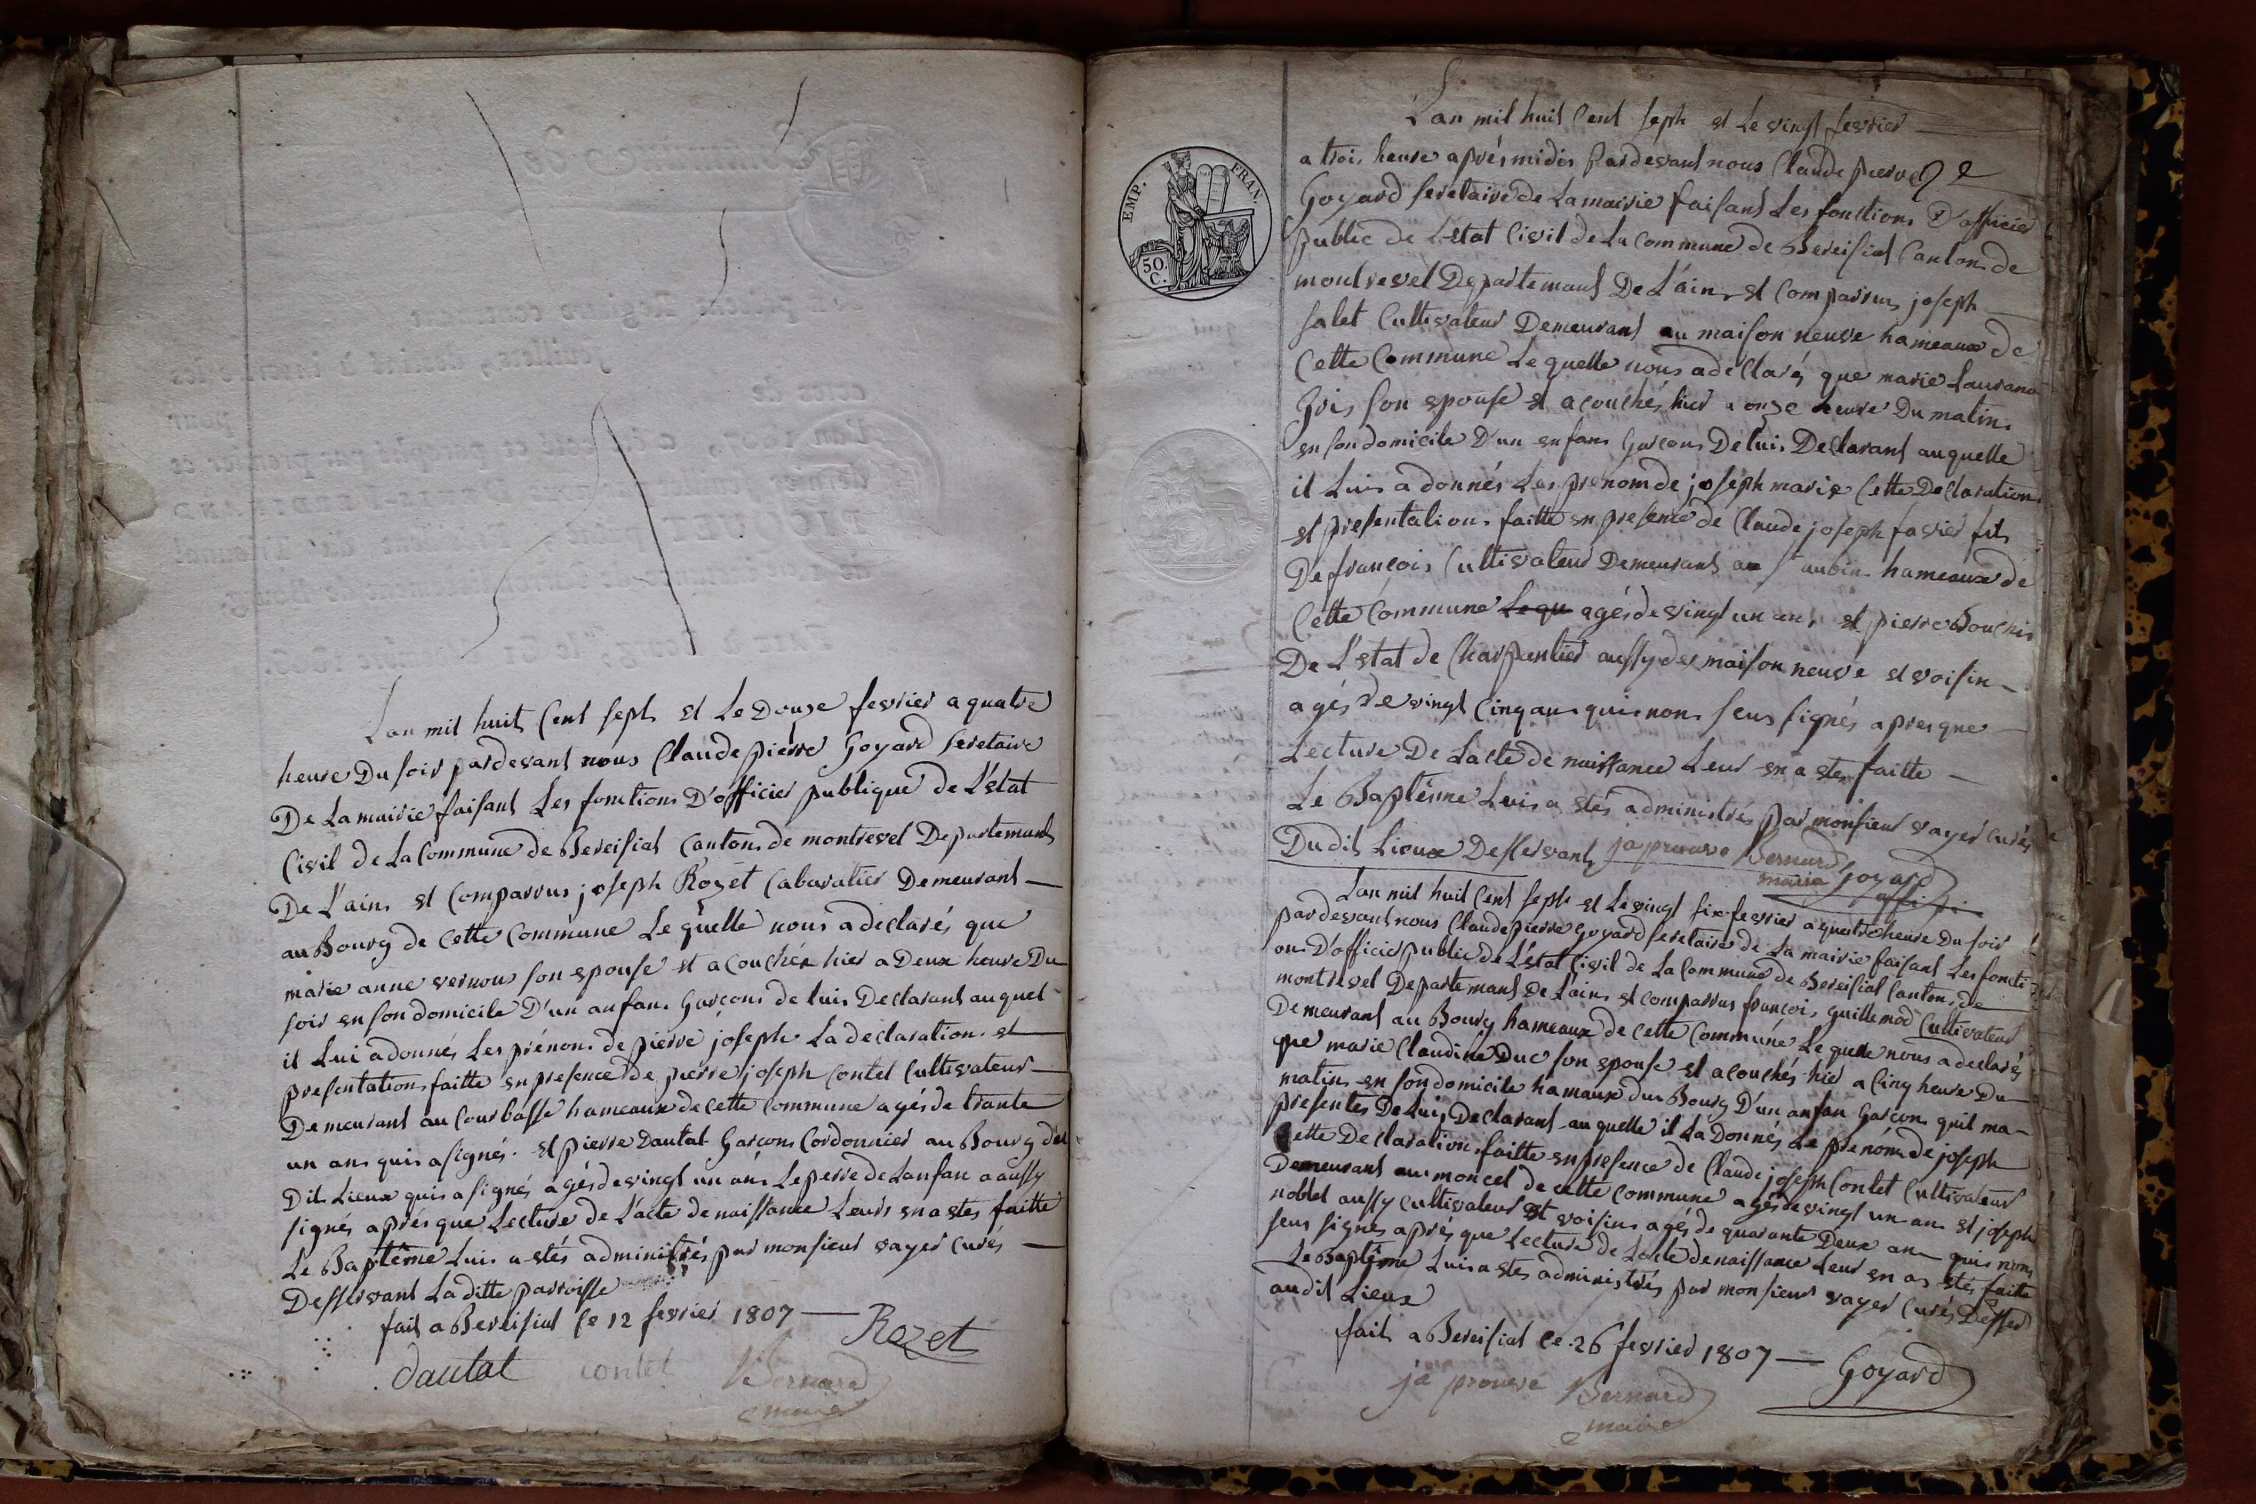 Lan mil huit Cent sept et Le Douze fevrier a quatre
heure Du soir pardevant nous Claude pierre Goyard seretaire
De La mairie faisant Les fonctions D'officier publique de L'état
Civil de La Commune de Bereisiat Canton de montrevel Departemant
De L'ain et Comparrus joseph Rozet Cabaratier Demeurant
au Bourg de Cette Commune Le quelle nous a declarés que
marie anne vernoux son epouse et acouchéx hier a Deux heure Du
soir en son domicile D'un anfan Garcons de luis Declarant auquel
il Lui a donnés Les prénons de pierre joseph La declaration et
presentation faitte en presence de pierre joseph Contet Cultivateur
Demeurant au Courbasse hameaux de Cette Commune agés de trante
un ans quis a signés. et pierre Dautat Garcons Cordonnier au Bourg du
Dit Lieux quis a signés agés de vingt un ans Le perre de Lanfan a aussy
signés aprés que Lecture de L'acte de naissance Leurs en a etes faitte
Le Baptême Luis a etés adminitrés par monsieur vayer Curés
Desservant La ditte parroisse
fait a Bereisiat Ce 12 fevrier 1807 — Rozet
Dautat contet Bernard
maire
EMP. FRAN.
50. C.
Lan mil huit Cent seph et Le vingt fevrier
a trois heure aprés midis Pardevant nous Claude pierre
Goyard seretaire de La mairie faisant Les fonctions D'officier
public de L'etat Civil de La Commune de Bereisiat Canton de
montrevel Departemant De L'ain et Comparrus joseph
salet Cultivateur Demeurant au maison neuve hameaux de
Cette Commune Le quelle nous a declarés que marie Lauranc
Gois son epouse et acouchés hier a onze heure Du matin
en son domicile D'un enfan Garcons De luis Declarant auquelle
il Luis a donnés Les prenom de joseph marie Cette Declaration
et presentation faitte en presence de Claude joseph favier fils
De francois Cultivateur Demeurant au St aubin hameaux de
Cette Commune Le qu agés de vingt un ans et pierre Bouchis
De L'etat de Charpantier aussy des maison neuve et voisin
agés de vingt Cinq ans quis nons seus signés apres que
Lecture De Lacte de naissance Leur en a etes faitte
Le Baptême Luis a etés administrés par monsieur vayer Curés
Dudit Lieux Desservant japrouve Bernard
maire Goyard
Lan mil huit Cent seph et Le vingt six fevrier a quatre heure Du soir
pardevant nous Claude pierre Goyard seretaire de La mairie faisant Les foncti
ons D'officier public de L'état Civil de La Commune de Bereisiat Canton de
montrevel Departemant de L'ain et Comparrus francois guillemod Cultivateur
Demeurant au Bourg hameaux de Cette Commune Le quelle nous a declarés
que marie Claudine Duc son epouse et acouchés hier a Cinq heure Du
matin en son domicile hamaux du Bourg D'un anfan Garcon quil ma
presentes De Luis Declarant auquelle il La Donnés Le prenóm de joseph
Cette Declaration faitte en presence de Claude joseph Contet Cultivateur
Demeurant au moncel de cette commune agés de vingt un ans et joseph
noblet aussy Cultivateur et voisin agés de quarante Deux ans quis nons
seus signes aprés que Lecture de Lacte de naissance Leur en as etés faitte
Le Baptême Luis a etes administrés par monsieur vayer Curés Desser
audit Lieux
fait a Bereisiat Ce 26 fevrier 1807 — Goyard
ja prouvé Bernard
maire